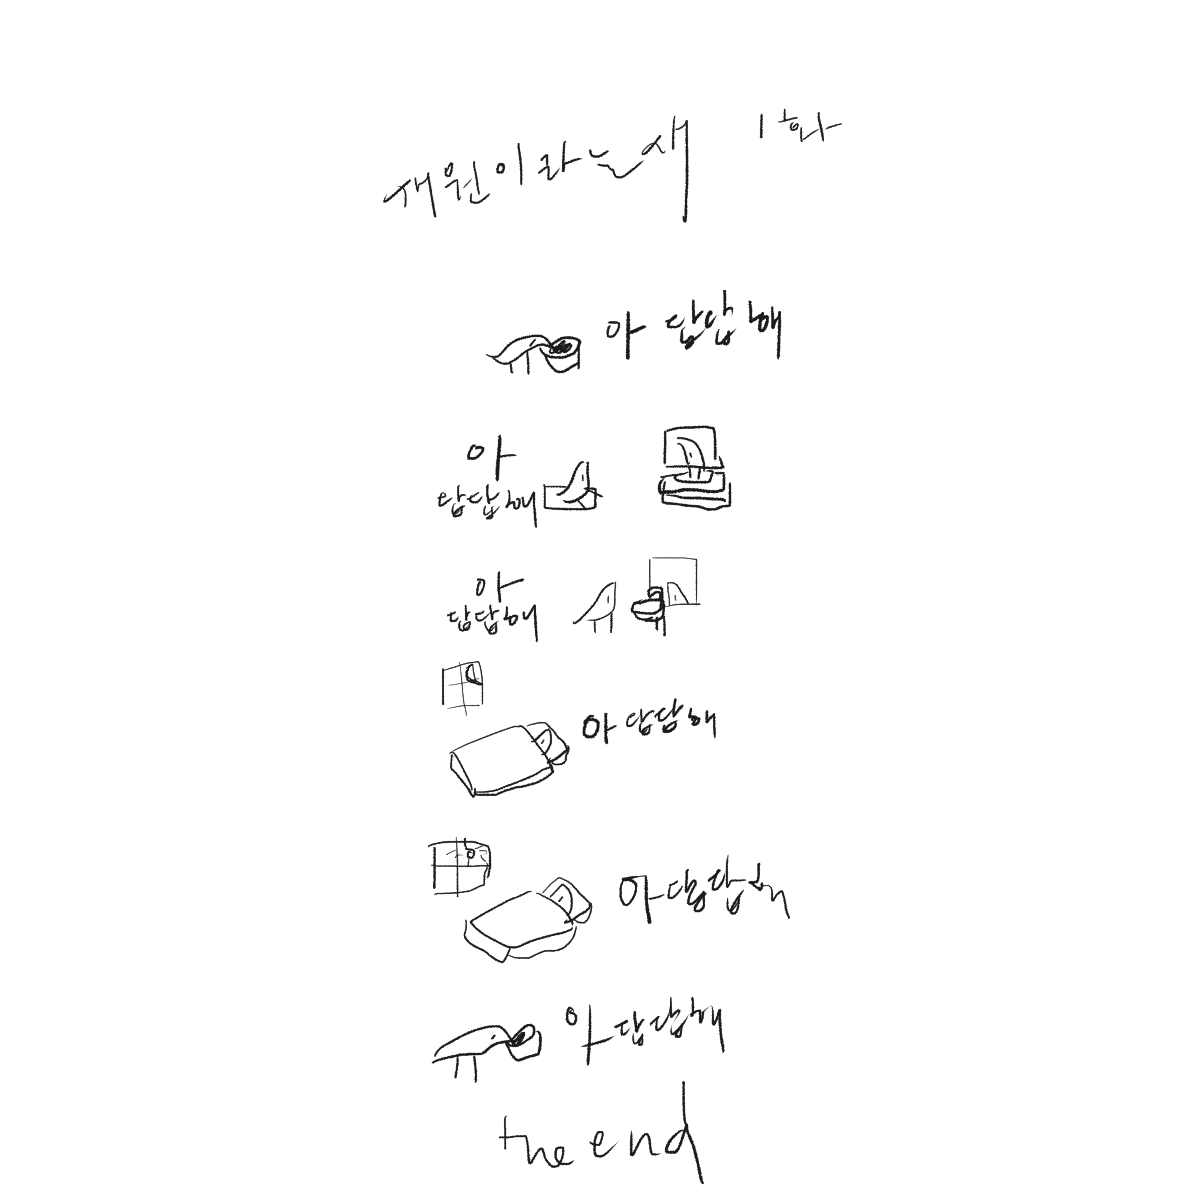 새원이라는새 1화
아 답답해
아
답답해
아
답답해
아 답답해
아 답답해
아 답답해
the end